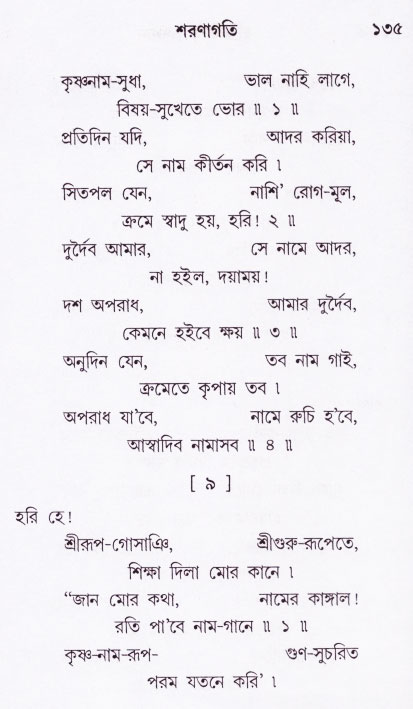 শরণাগতি ১৩৫
কৃষ্ণনাম-সুধা, ভাল নাহি লাগে,
বিষয়-সুখেতে ভোর ॥ ১ ॥
প্রতিদিন যদি, আদর করিয়া,
সে নাম কীর্তন করি ।
সিতপল যেন, নাশি' রোগ-মূল,
ক্রমে স্বাদু হয়, হরি! ২ ॥
দুর্দৈব আমার, সে নামে আদর,
না হইল, দয়াময়!
দশ অপরাধ, আমার দুর্দৈব,
কেমনে হইবে ক্ষয় ॥ ৩ ॥
অনুদিন যেন, তব নাম গাই,
ক্রমেতে কৃপায় তব ।
অপরাধ যা'বে, নামে রুচি হ'বে,
আস্বাদিব নামাসব ॥ ৪ ॥
[ ৯ ]
হরি হে!
শ্রীরূপ-গোসাঞি, শ্রীগুরু-রূপেতে,
শিক্ষা দিলা মোর কানে ।
“জান মোর কথা, নামের কাঙ্গাল!
রতি পা'বে নাম-গানে ॥ ১ ॥
কৃষ্ণ-নাম-রূপ- গুণ-সুচরিত
পরম যতনে করি' ।